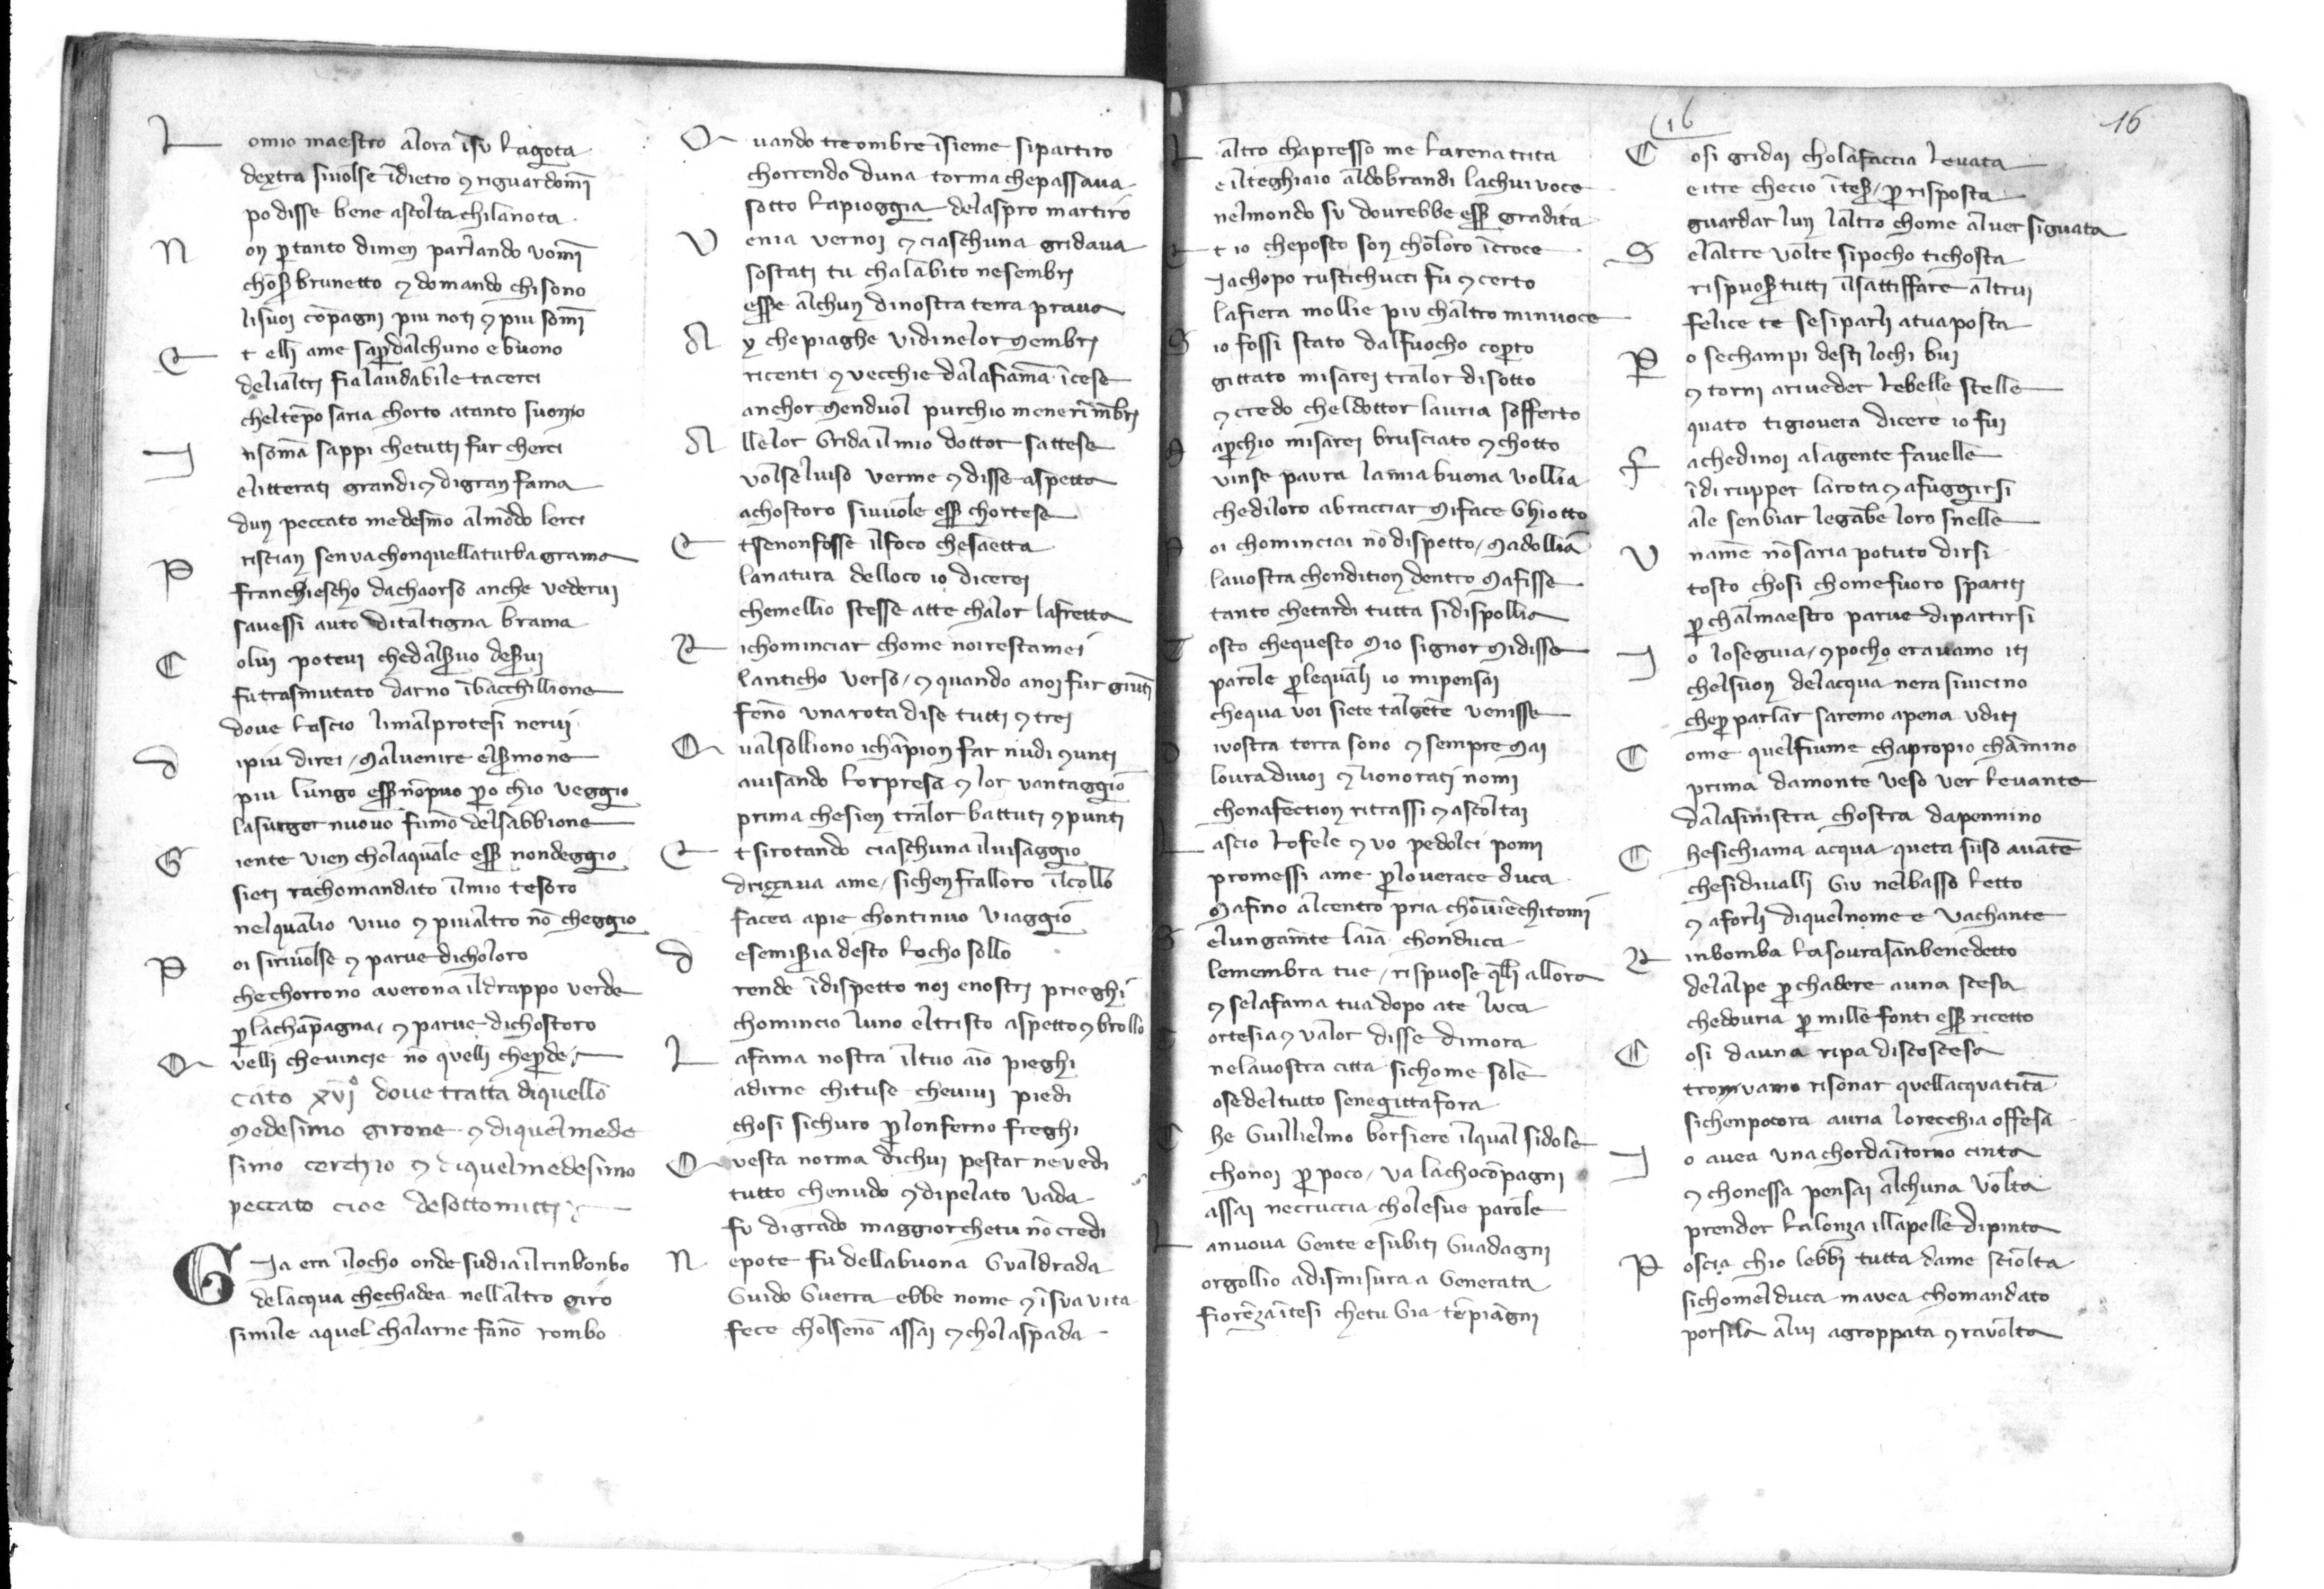 L omio maestro alora īsu la gota
dextra siuolse īdietro ⁊ riguardomī
po disse bene ascolta chilanota
N on ꝑ tanto dimen parlando uomī
choꝭ brunetto ⁊ domando chi sono
lisuoi cōpagni piu noti ⁊ piu somī
E t elli ame saꝑ dalchuno e buono
delialtri fia laudabile tacerci
cheltēpo saria chorto atanto suono
I nsomā sappi chetutti fur cherci
elitterati grandi ⁊ digran fama
dun peccato medesmo almōdo lerci
P riscian senua chonquellaturba grama
franchiescho dachaorso anche uederui
sauessi auto ditaltigna brama
C olui poteui chedalẜuo deẜui
fu trasmutato darno ībacchillione
doue lascio limalprotesi nerui
d ipiu direi / maluenire elẜmone
piu lungo eẜẜ nōpuo ꝑo chio ueggio
lasurger nuouo fumō delsabbione
G iente uien cholaquale eẜẜ nondeggio
sieti rachomandato ilmio tesoro
nelqualio uiuo ⁊ piualtro nō cheggio
P oi siriuolse ⁊ parue dicholoro
chechorrono auerona ildrappo uerde
ꝑ lachāpagna / ⁊ parue dichostoro
Q uelli cheuincie nō quelli cheꝑde
cāto xvjº doue tratta diquello
medesimo girone ⁊ diquelmede
simo cerchio ⁊ diquelmedesimo
peccato cioe desottomitti
G Ia era ilocho onde sudia ilrinbonbo
delacqua chechadea nellaltro giro
simile aquel chalarne fanō rombo
Q uando treombre īsieme sipartiro
chorrendo duna torma chepassaua
sotto lapioggia delaspro martiro
V enia uernoi ⁊ ciaschuna gridaua
sostati tu chalabito nesembri
eẜẜe alchun dinostra terra praua
A y chepiaghe uidinelor membri
ricenti ⁊ uecchie dalafiamā īcese
anchor menduol purchio menerimēbri
A llelor grida ilmio dottor sattese
uolseluiso uerme ⁊ disse aspetta
achostoro siuuole eẜẜ chortese
E tsenonfosse ilfoco chesaetta
lanatura delloco io dicerei
chemellio stesse atte chalor lafretta
R ichominciar chome noi restamei
lanticho uerso / ⁊ quando anoi fur giūti
fenō unarota dise tutti ⁊ trei
Q ualsolliono ichāpion far nudi ⁊unti
auisando lorpresa ⁊ lor uantaggio
prima chesien tralor battuti ⁊ punti
E tsirotando ciaschuna iluisaggio
drizzaua ame / sichen fralloro ilcollo
facea apie chontinuo uiaggio
d esemiẜia desto locho sollo
rende īdispetto noi enostri prieghi
chomincio luno eltristo aspetto ⁊ brollo
L afama nostra iltuo aīo pieghi
adirne chituse cheuiui piedi
chosi sichuro ꝑ lonferno freghi
Q uesta norma dichui pestar neuedi
tutto chenudo ⁊ dipelato uada
fu digrado maggiorchetu nō credi
N epote fu dellabuona gualdrada
Guido guerra ebbe nome ⁊ īsua uita
fece cholsenō assai ⁊ cholaspada
L altro chapresso me larena trita
e ilteghiaio aldobrandi lachui uoce
nelmondo su dourebbe eẜẜ gradita
E t io cheposto son choloro īcroce
Iachopo rustichucci fu ⁊ certo
lafiera mollie piu chaltro minuoce
S io fossi stato dalfuocho coꝑto
gittato misarei tralor disotto
⁊ credo cheldottor lauria sofferto
M aꝑchio misarei brusciato ⁊ chotto
uinse paura lamia buona uollia
chediloro abracciar miface ghiotto
P oi chominciai nō dispetto / madollia
lauostra chondition dentro mafisse
tanto chetardi tutta sidispollia
T osto chequesto mio signor midisse
parole ꝑlequali io mipensai
chequa uoi siete talgēte uenisse
d iuostra terra sono ⁊ sempre mai
loura diuoi ⁊ lionorati nomi
chonafection ritrassi ⁊ ascoltai
L ascio lofele ⁊ uo pedolci pomi
promessi ame ꝑlouerace duca
mafino alcentro pria chōuiēchitomi
S elungamēte laīa chonduca
lemembra tue / rispuose qlli allora
⁊ selafama tua dopo ate luca
C ortesia ⁊ ualor disse dimora
nelauostra citta sichome sole
osedeltutto senegittafora
C he Guilielmo borsiere ilqual sidole
chonoi ꝑ poco / ua lachocōpagni
assai necruccia cholesue parole
L anuoua gente esubiti guadagni
orgollio adismisura a generata
fiorēza ītesi chetu gia tēpiagni
16
16
C osi gridai cholafaccia leuata
eitre checio īteẜ / ꝑ risposta
guardar lun laltro chome aluer siguata
S elaltre uolte sipocho tichosta
rispuoẜ tutti ilsattiffare altrui
felice te sesiparli atuaposta
P o sechampi desti lochi bui
⁊ torni ariueder lebelle stelle
quāto tigiouera dicere io fui
f achedinoi alagente fauelle
īdi rupper larota ⁊ afuggirsi
ale senbiar legābe loro snelle
V namē nōsaria potuto dirsi
tosto chosi chomefuoro spariti
ꝑ chalmaestro parue dipartirsi
I o loseguia / ⁊ pocho erauamo iti
chelsuon delacqua nera siuicino
cheꝑ parlar saremo apena uditi
C ome quelfiume chapropio chamino
prima damonte ueso uer leuante
dalasinistra chostra dapennino
C hesichiama acqua queta suso auāte
chesidiualli giu nelbasso letto
⁊ aforli diquelnome e uachante
R inbomba lasourasanbenedetto
delalpe ꝑ chadere auna scesa
chedouria ꝑ mille fonti eẜẜ ricetto
C osi dauna ripa discoscesa
trouamo risonar quellacquatīta
sichenpocora auria lorecchia offesa
I o auea una chorda ītorno cinta
⁊ chonessa pensai alchuna uolta
prender lalonza illapelle dipinta
P oscia chio lebbi tutta dame sciolta
sichomelduca mauea chomandato
porsila alui agroppata ⁊ rauolta